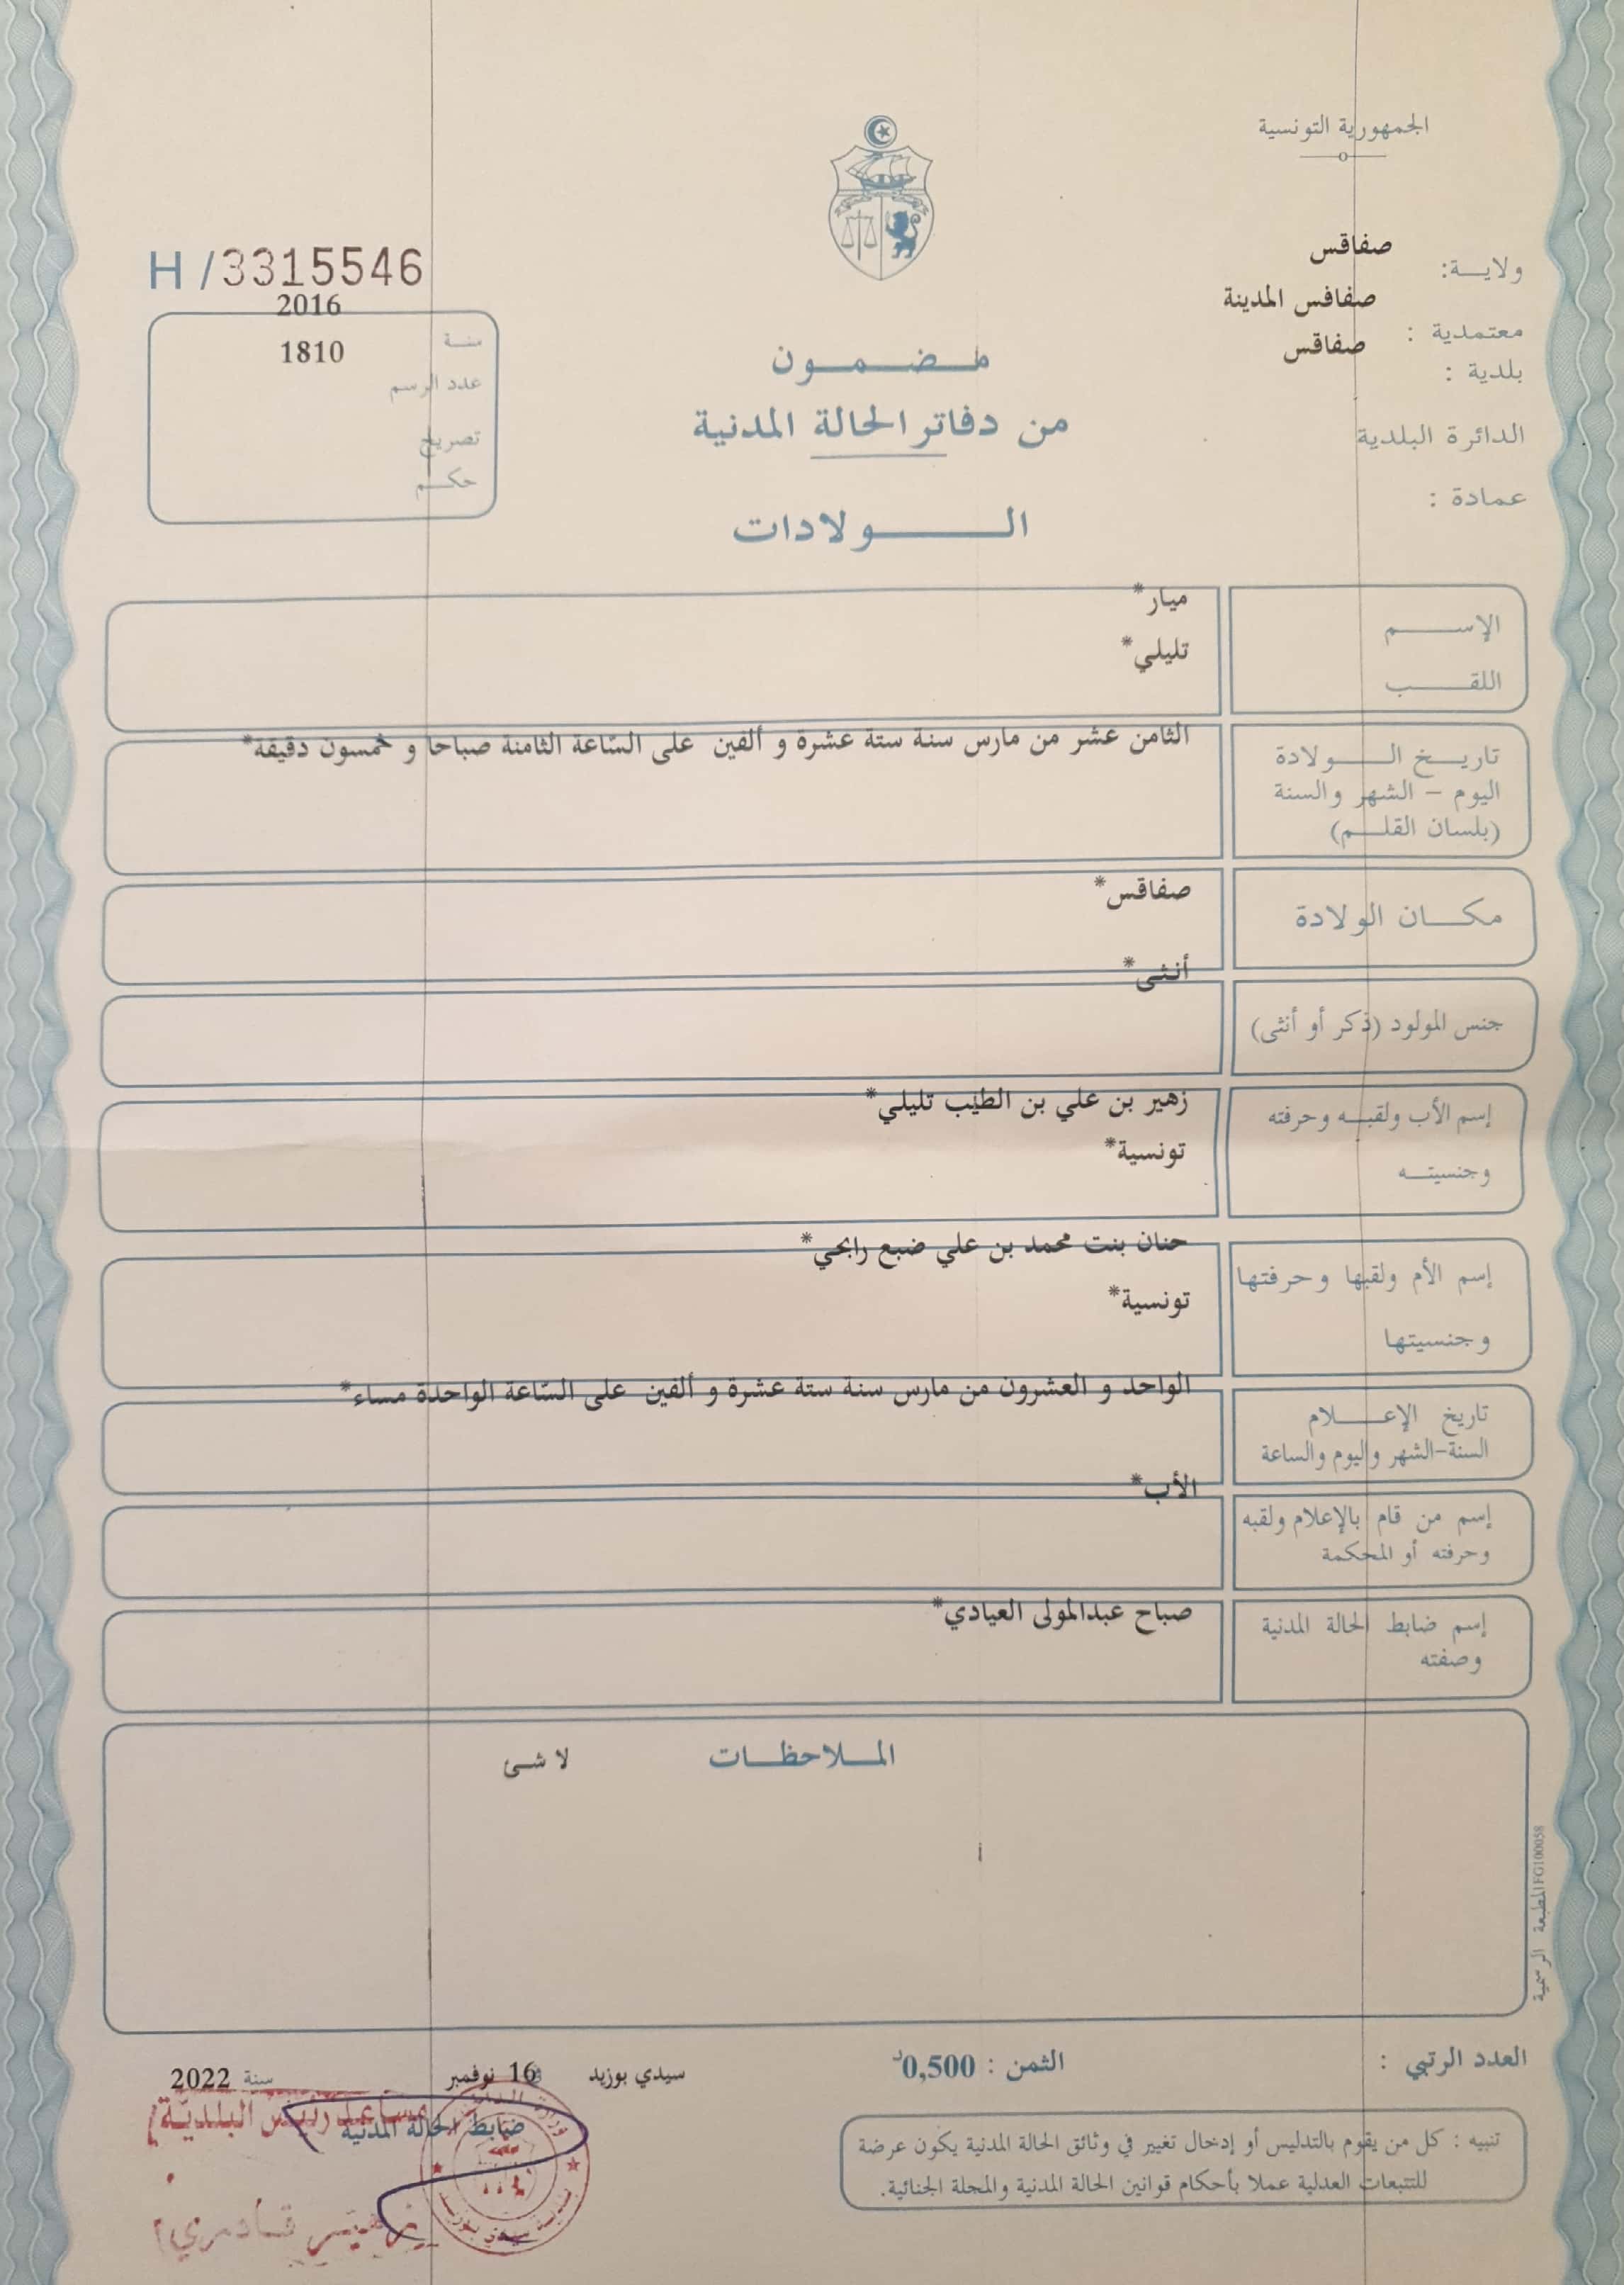 الجمهورية التونسية
ولاية: صفاقس
معتمدية : صفافس المدينة
بلدية : صفاقس
الدائرة البلدية
عمادة :
H / 3315546
سنة 2016
عدد الرسم 1810
تصريح
حكم
مضمون
من دفاتر الحالة المدنية
الولادات
الإسم ميار*
اللقب تليلي*
تاريخ الولادة
اليوم – الشهر والسنة
(بلسان القلم)
الثامن عشر من مارس سنة ستة عشرة و ألفين على السّاعة الثامنة صباحا و خمسون دقيقة*
مكان الولادة صفاقس*
جنس المولود (ذكر أو أنثى) أنثى*
إسم الأب ولقبه وحرفته زهير بن علي بن الطيب تليلي*
وجنسيته تونسية*
إسم الأم ولقبها وحرفتها حنان بنت محمد بن علي ضبع رابحي*
وجنسيتها تونسية*
تاريخ الإعلام
السنة-الشهر واليوم والساعة
الواحد و العشرون من مارس سنة ستة عشرة و ألفين على السّاعة الواحدة مساء*
إسم من قام بالإعلام ولقبه
وحرفته أو المحكمة
الأب*
إسم ضابط الحالة المدنية
وصفته
صباح عبدالمولى العيادي*
الملاحظات لا شئ
المطبعة الرسمية FG100058
العدد الرتبي :
الثمن : 0,500د
سيدي بوزيد في 16 نوفمبر سنة 2022
ضابط الحالة المدنية
مساعد رئيس البلدية
زهير قادري
تنبيه : كل من يقوم بالتدليس أو إدخال تغيير في وثائق الحالة المدنية يكون عرضة
للتتبعات العدلية عملا بأحكام قوانين الحالة المدنية والمجلة الجنائية.